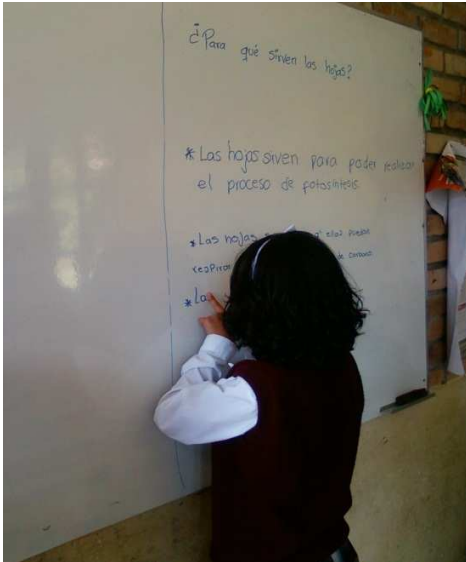 ¿Para qué sirven las hojas?
* Las hojas sirven para poder realizar
el proceso de fotosintesis.
* Las hojas ellas puedan
respirar de carbono
* La